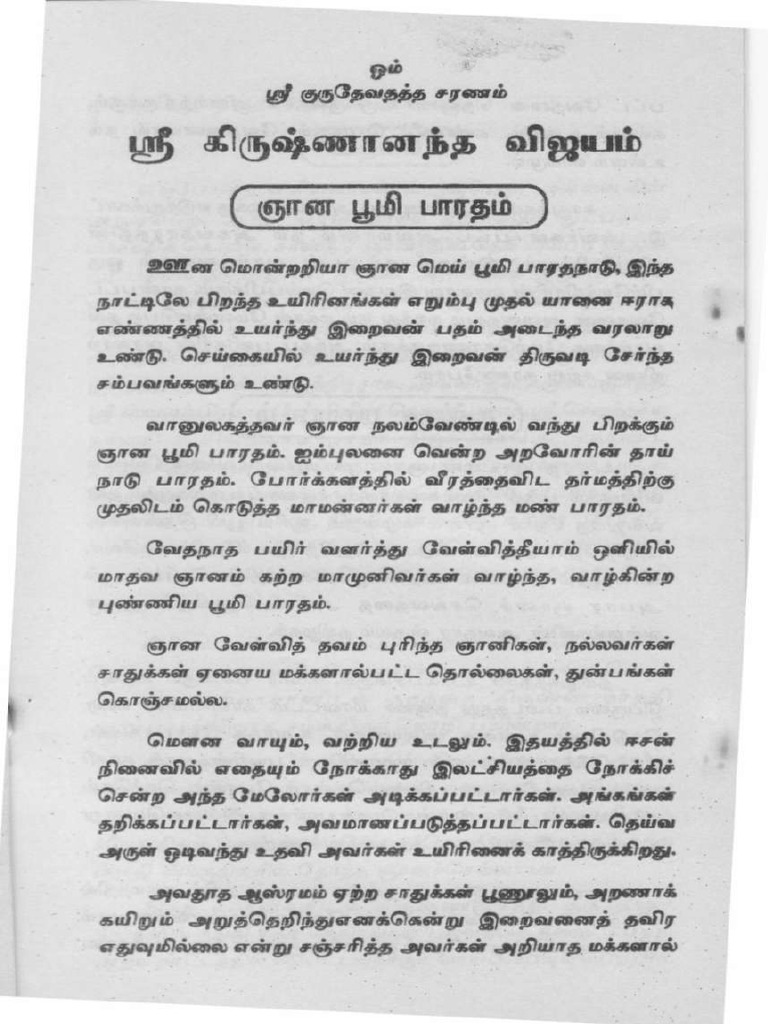 ஓம்
ஸ்ரீ குருதேவதத்த சரணம்
ஸ்ரீ கிருஷ்ணானந்த விஜயம்
ஞான பூமி பாரதம்
ஊன மொன்றறியா ஞான மெய் பூமி பாரதநாடு, இந்த
நாட்டிலே பிறந்த உயிரினங்கள் எறும்பு முதல் யானை ஈராக
எண்ணத்தில் உயர்ந்து இறைவன் பதம் அடைந்த வரலாறு
உண்டு. செய்கையில் உயர்ந்து இறைவன் திருவடி சேர்ந்த
சம்பவங்களும் உண்டு.
வானுலகத்தவர் ஞான நலம்வேண்டில் வந்து பிறக்கும்
ஞான பூமி பாரதம். ஐம்புலனை வென்ற அறவோரின் தாய்
நாடு பாரதம். போர்க்களத்தில் வீரத்தைவிட தர்மத்திற்கு
முதலிடம் கொடுத்த மாமன்னர்கள் வாழ்ந்த மண் பாரதம்.
வேதநாத பயிர் வளர்த்து வேள்வித்தீயாம் ஒளியில்
மாதவ ஞானம் கற்ற மாமுனிவர்கள் வாழ்ந்த, வாழ்கின்ற
புண்ணிய பூமி பாரதம்.
ஞான வேள்வித் தவம் புரிந்த ஞானிகள், நல்லவர்கள்
சாதுக்கள் ஏனைய மக்களால்பட்ட தொல்லைகள், துன்பங்கள்
கொஞ்சமல்ல.
மௌன வாயும், வற்றிய உடலும். இதயத்தில் ஈசன்
நினைவில் எதையும் நோக்காது இலட்சியத்தை நோக்கிச்
சென்ற அந்த மேலோர்கள் அடிக்கப்பட்டார்கள். அங்கங்கள்
தறிக்கப்பட்டார்கள், அவமானப்படுத்தப்பட்டார்கள். தெய்வ
அருள் ஒடிவந்து உதவி அவர்கள் உயிரினைக் காத்திருக்கிறது.
அவதூத ஆஸ்ரமம் ஏற்ற சாதுக்கள் பூணூலும், அறணாக்
கயிறும் அறுத்தெறிந்துஎனக்கென்று இறைவனைத் தவிர
எதுவுமில்லை என்று சஞ்சரித்த அவர்கள் அறியாத மக்களால்